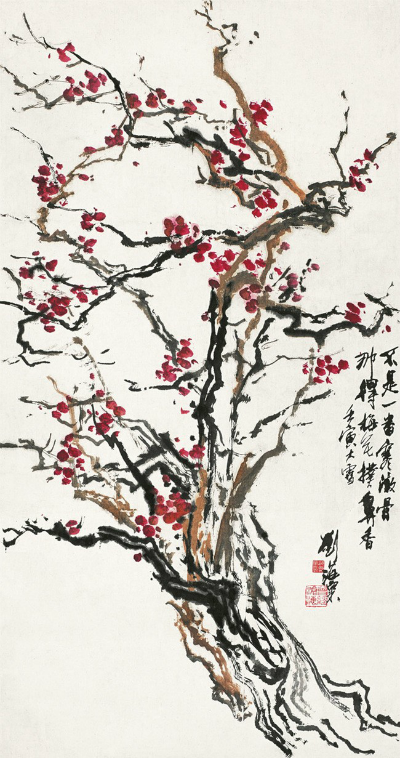 不是一番寒澈骨
那得梅花撲鼻香
壬寅大雪
劉